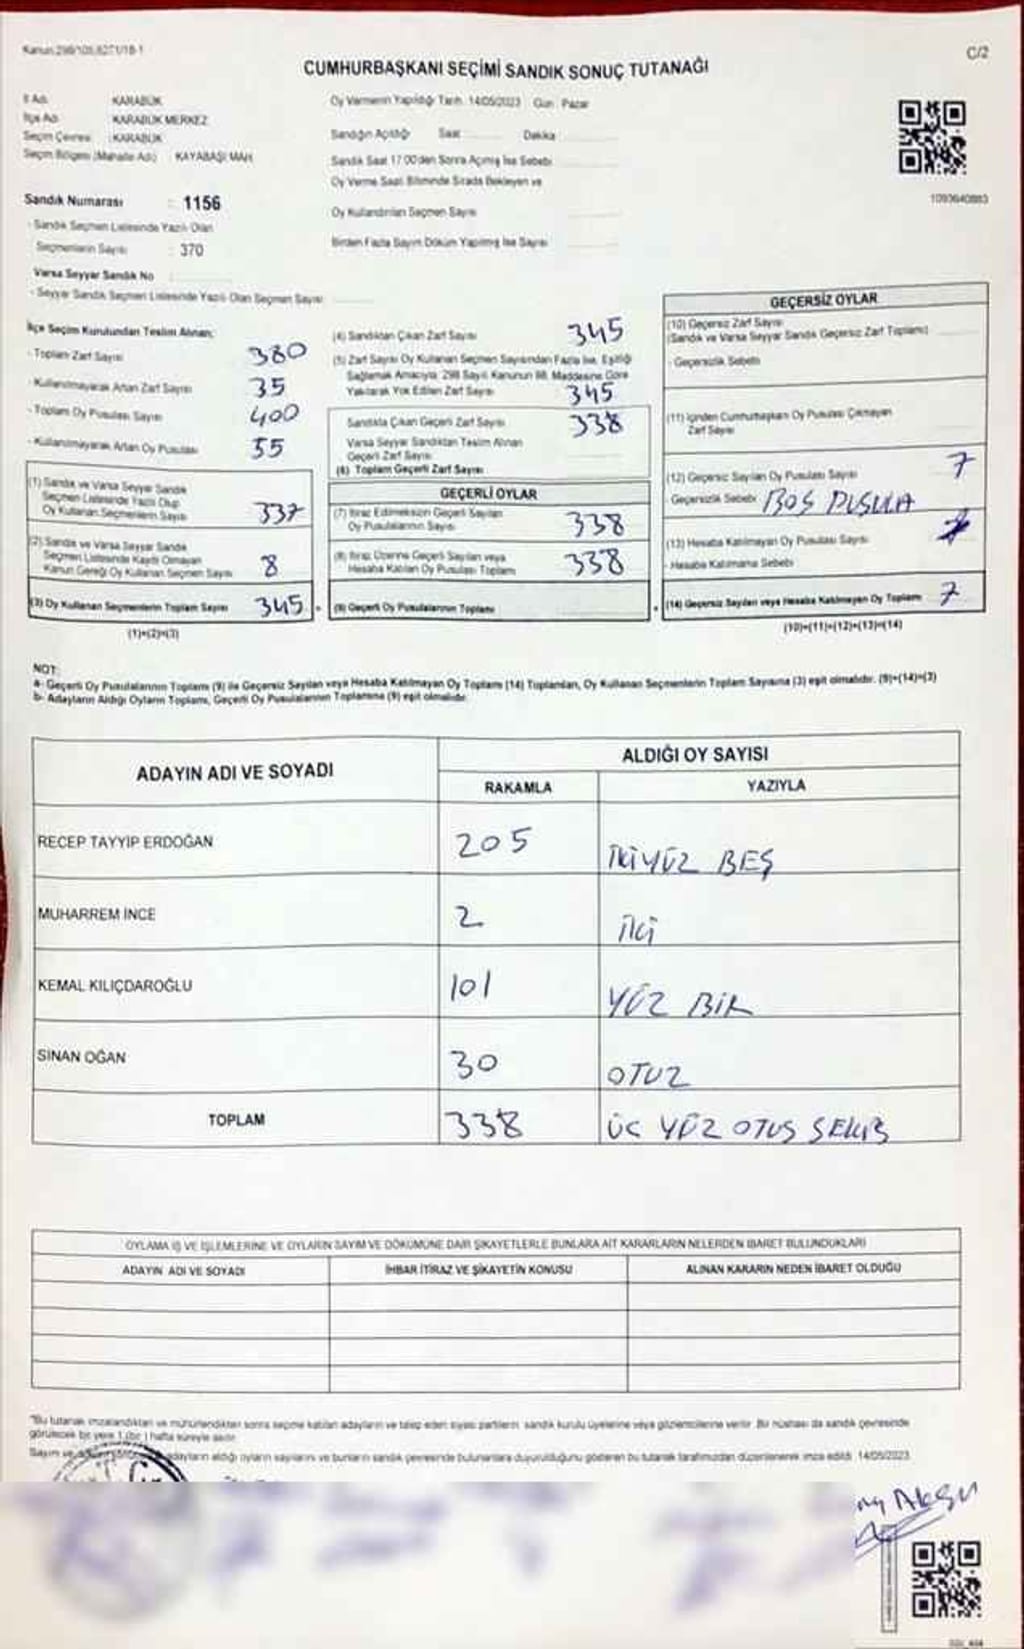 Kanun:298/105,6271/18-1
C/2
CUMHURBAŞKANI SEÇİMİ SANDIK SONUÇ TUTANAĞI
İl Adı KARABÜK
İlçe Adı KARABÜK MERKEZ
Seçim Çevresi :KARABÜK
Seçim Bölgesi (Mahalle Adı) : KAYABAŞI MAH.
Sandık Numarası : 1156
- Sandık Seçmen Listesinde Yazılı Olan
Seçmenlerin Sayısı : 370
Varsa Seyyar Sandık No
- Seyyar Sandık Seçmen Listesinde Yazılı Olan Seçmen Sayısı
Oy Vermenin Yapıldığı Tarih: 14/05/2023 Gün: Pazar
Sandığın Açıldığı Saat Dakika
Sandık Saat 17:00'den Sonra Açılmış İse Sebebi
Oy Verme Saati Bitiminde Sırada Bekleyen ve
Oy Kullandırılan Seçmen Sayısı
Birden Fazla Sayım Döküm Yapılmış İse Sayısı
1093640883
İlçe Seçim Kurulundan Teslim Alınan;
- Toplam Zarf Sayısı 380
- Kullanılmayarak Artan Zarf Sayısı 35
- Toplam Oy Pusulası Sayısı 400
- Kullanılmayarak Artan Oy Pusulası 55
(1) Sandık ve Varsa Seyyar Sandık
Seçmen Listesinde Yazılı Olup
Oy Kullanan Seçmenlerin Sayısı 337
(2) Sandık ve Varsa Seyyar Sandık
Seçmen Listesinde Kaydı Olmayan
Kanun Gereği Oy Kullanan Seçmen Sayısı 8
(3) Oy Kullanan Seçmenlerin Toplam Sayısı 345
(1)+(2)=(3)
(4) Sandıktan Çıkan Zarf Sayısı 345
(5) Zarf Sayısı Oy Kullanan Seçmen Sayısından Fazla İse, Eşitliği
Sağlamak Amacıyla; 298 Sayılı Kanunun 98. Maddesine Göre
Yakılarak Yok Edilen Zarf Sayısı 345
Sandıkta Çıkan Geçerli Zarf Sayısı 338
Varsa Seyyar Sandıktan Teslim Alınan
Geçerli Zarf Sayısı
(6) Toplam Geçerli Zarf Sayısı
GEÇERLİ OYLAR
(7) İtiraz Edilmeksizin Geçerli Sayılan
Oy Pusulalarının Sayısı 338
(8) İtiraz Üzerine Geçerli Sayılan veya
Hesaba Katılan Oy Pusulası Toplamı 338
(9) Geçerli Oy Pusulalarının Toplamı
GEÇERSİZ OYLAR
(10) Geçersiz Zarf Sayısı
(Sandık ve Varsa Seyyar Sandık Geçersiz Zarf Toplamı)
- Geçersizlik Sebebi
(11) İçinden Cumhurbaşkanı Oy Pusulası Çıkmayan
Zarf Sayısı
(12) Geçersiz Sayılan Oy Pusulası Sayısı 7
- Geçersizlik Sebebi BOŞ PUSULA
(13) Hesaba Katılmayan Oy Pusulası Sayısı
- Hesaba Katılmama Sebebi
(14) Geçersiz Sayılan veya Hesaba Katılmayan Oy Toplamı 7
(10)+(11)+(12)+(13)=(14)
NOT:
a- Geçerli Oy Pusulalarının Toplamı (9) ile Geçersiz Sayılan veya Hesaba Katılmayan Oy Toplamı (14) Toplamları, Oy Kullanan Seçmenlerin Toplam Sayısına (3) eşit olmalıdır. (9)+(14)=(3)
b- Adayların Aldığı Oyların Toplamı, Geçerli Oy Pusulalarının Toplamına (9) eşit olmalıdır.
ADAYIN ADI VE SOYADI ALDIĞI OY SAYISI
RAKAMLA YAZIYLA
RECEP TAYYİP ERDOĞAN 205 İKİYÜZ BEŞ
MUHARREM İNCE 2 İKİ
KEMAL KILIÇDAROĞLU 101 YÜZ BİR
SİNAN OĞAN 30 OTUZ
TOPLAM 338 ÜÇ YÜZ OTUS SEKİZ
OYLAMA İŞ VE İŞLEMLERİNE VE OYLARIN SAYIM VE DÖKÜMÜNE DAİR ŞİKAYETLERLE BUNLARA AİT KARARLARIN NELERDEN İBARET BULUNDUKLARI
ADAYIN ADI VE SOYADI İHBAR İTİRAZ VE ŞİKAYETİN KONUSU ALINAN KARARIN NEDEN İBARET OLDUĞU
"Bu tutanak imzalandıktan ve mühürlendikten sonra seçime katılan adayların ve talep eden siyasi partilerin, sandık kurulu üyelerine veya gözlemcilerine verilir. Bir nüshası da sandık çevresinde
görülecek bir yere 1 (bir) hafta süreyle asılır.
Sayım ve adayların aldığı oyların sayılarını ve bunların sandık çevresinde bulunanlara duyurulduğunu gösteren bu tutanak tarafımızdan düzenlenerek imza edildi. 14/05/2023
AKSU